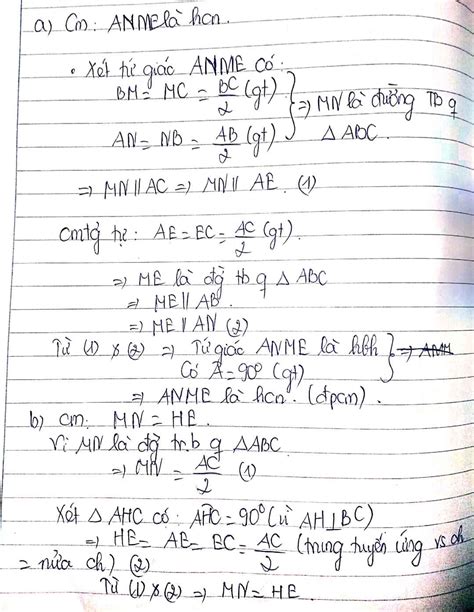 a) Cm: ANME là hcn.
• Xét tứ giác ANME có:
BM = MC = BC/2 (gt)
AN = NB = AB/2 (gt) } ⇒ MN là đường Tb q ΔABC
⇒ MN // AC ⇒ MN // AE. (1)
Cmtg tự: AE = EC = AC/2 (gt).
⇒ ME là đg tb q Δ ABC
⇒ ME // AB.
⇒ ME // AN (2)
Từ (1) & (2) ⇒ Tứ giác ANME là hbh
Có Â = 90° (gt) } ⇒
⇒ ANME là hcn. (đpcm).
b) cm: MN = HE.
Vì MN là đg tr.b q ΔABC
⇒ MN = AC/2 (1)
Xét Δ AHC có: AHC = 90° (vì AH ⊥ BC)
⇒ HE = AE = EC = AC/2 (trung tuyến ứng vs ch
= nửa ch) (2)
Từ (1) & (2) ⇒ MN = HE.